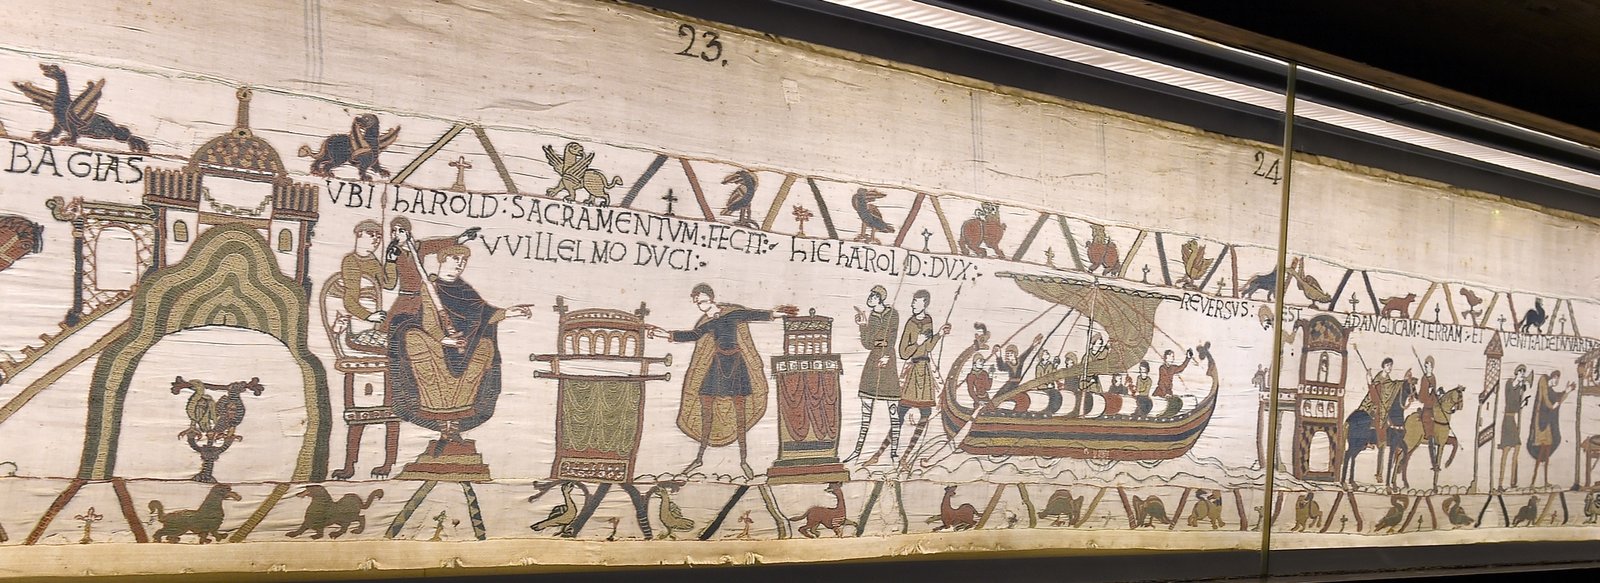 23.
24
BAGIAS
VBI hAROLD : SACRAMENTVM : FECIT :
VVILLELMO DVCI :
hIC hAROLD : DVX :
REVERSVS : EST AD ANGLICAM : TERRAM : ET VENIT : AD